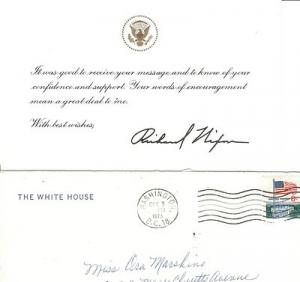 It was good to receive your message and to know of your
confidence and support. Your words of encouragement
mean a great deal to me.
With best wishes,
Richard Nixon
THE WHITE HOUSE
WASHINGTON,
D.C.
Miss Ora
Avenue